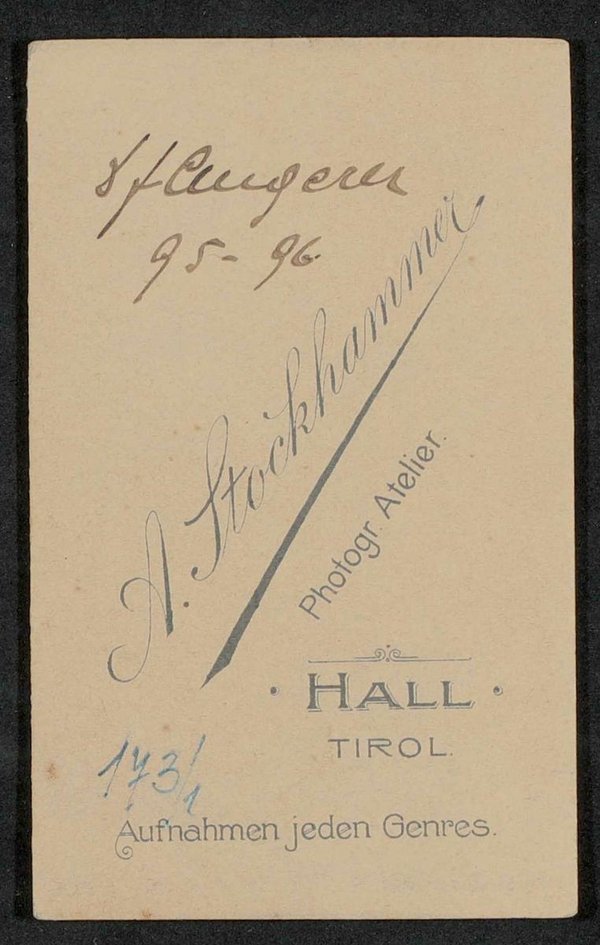 Angerer
95-96
A. Stockhammer
Photogr. Atelier.
· HALL ·
TIROL.
173/1
Aufnahmen jeden Genres.